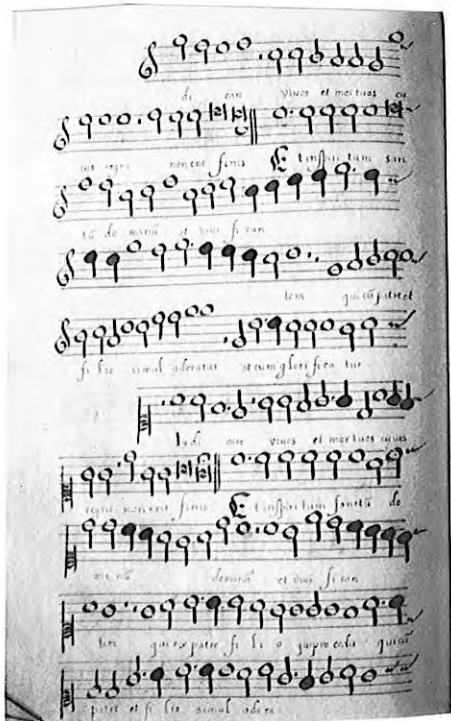 di care vivos et mortuos cu
ius regni non erit finis Et in spiritum san
tū do minū et vivi fi can
tem qui cū patre et
fi lio simul adoratur et cum glori fica tur
Iudi care vivos et mortuos cuius
regni non erit finis Et in spiritum sanctū do
mi nū et vivi fi can
tem qui ex patre fi li o que procedit qui cū
patre et fi lio simul adora